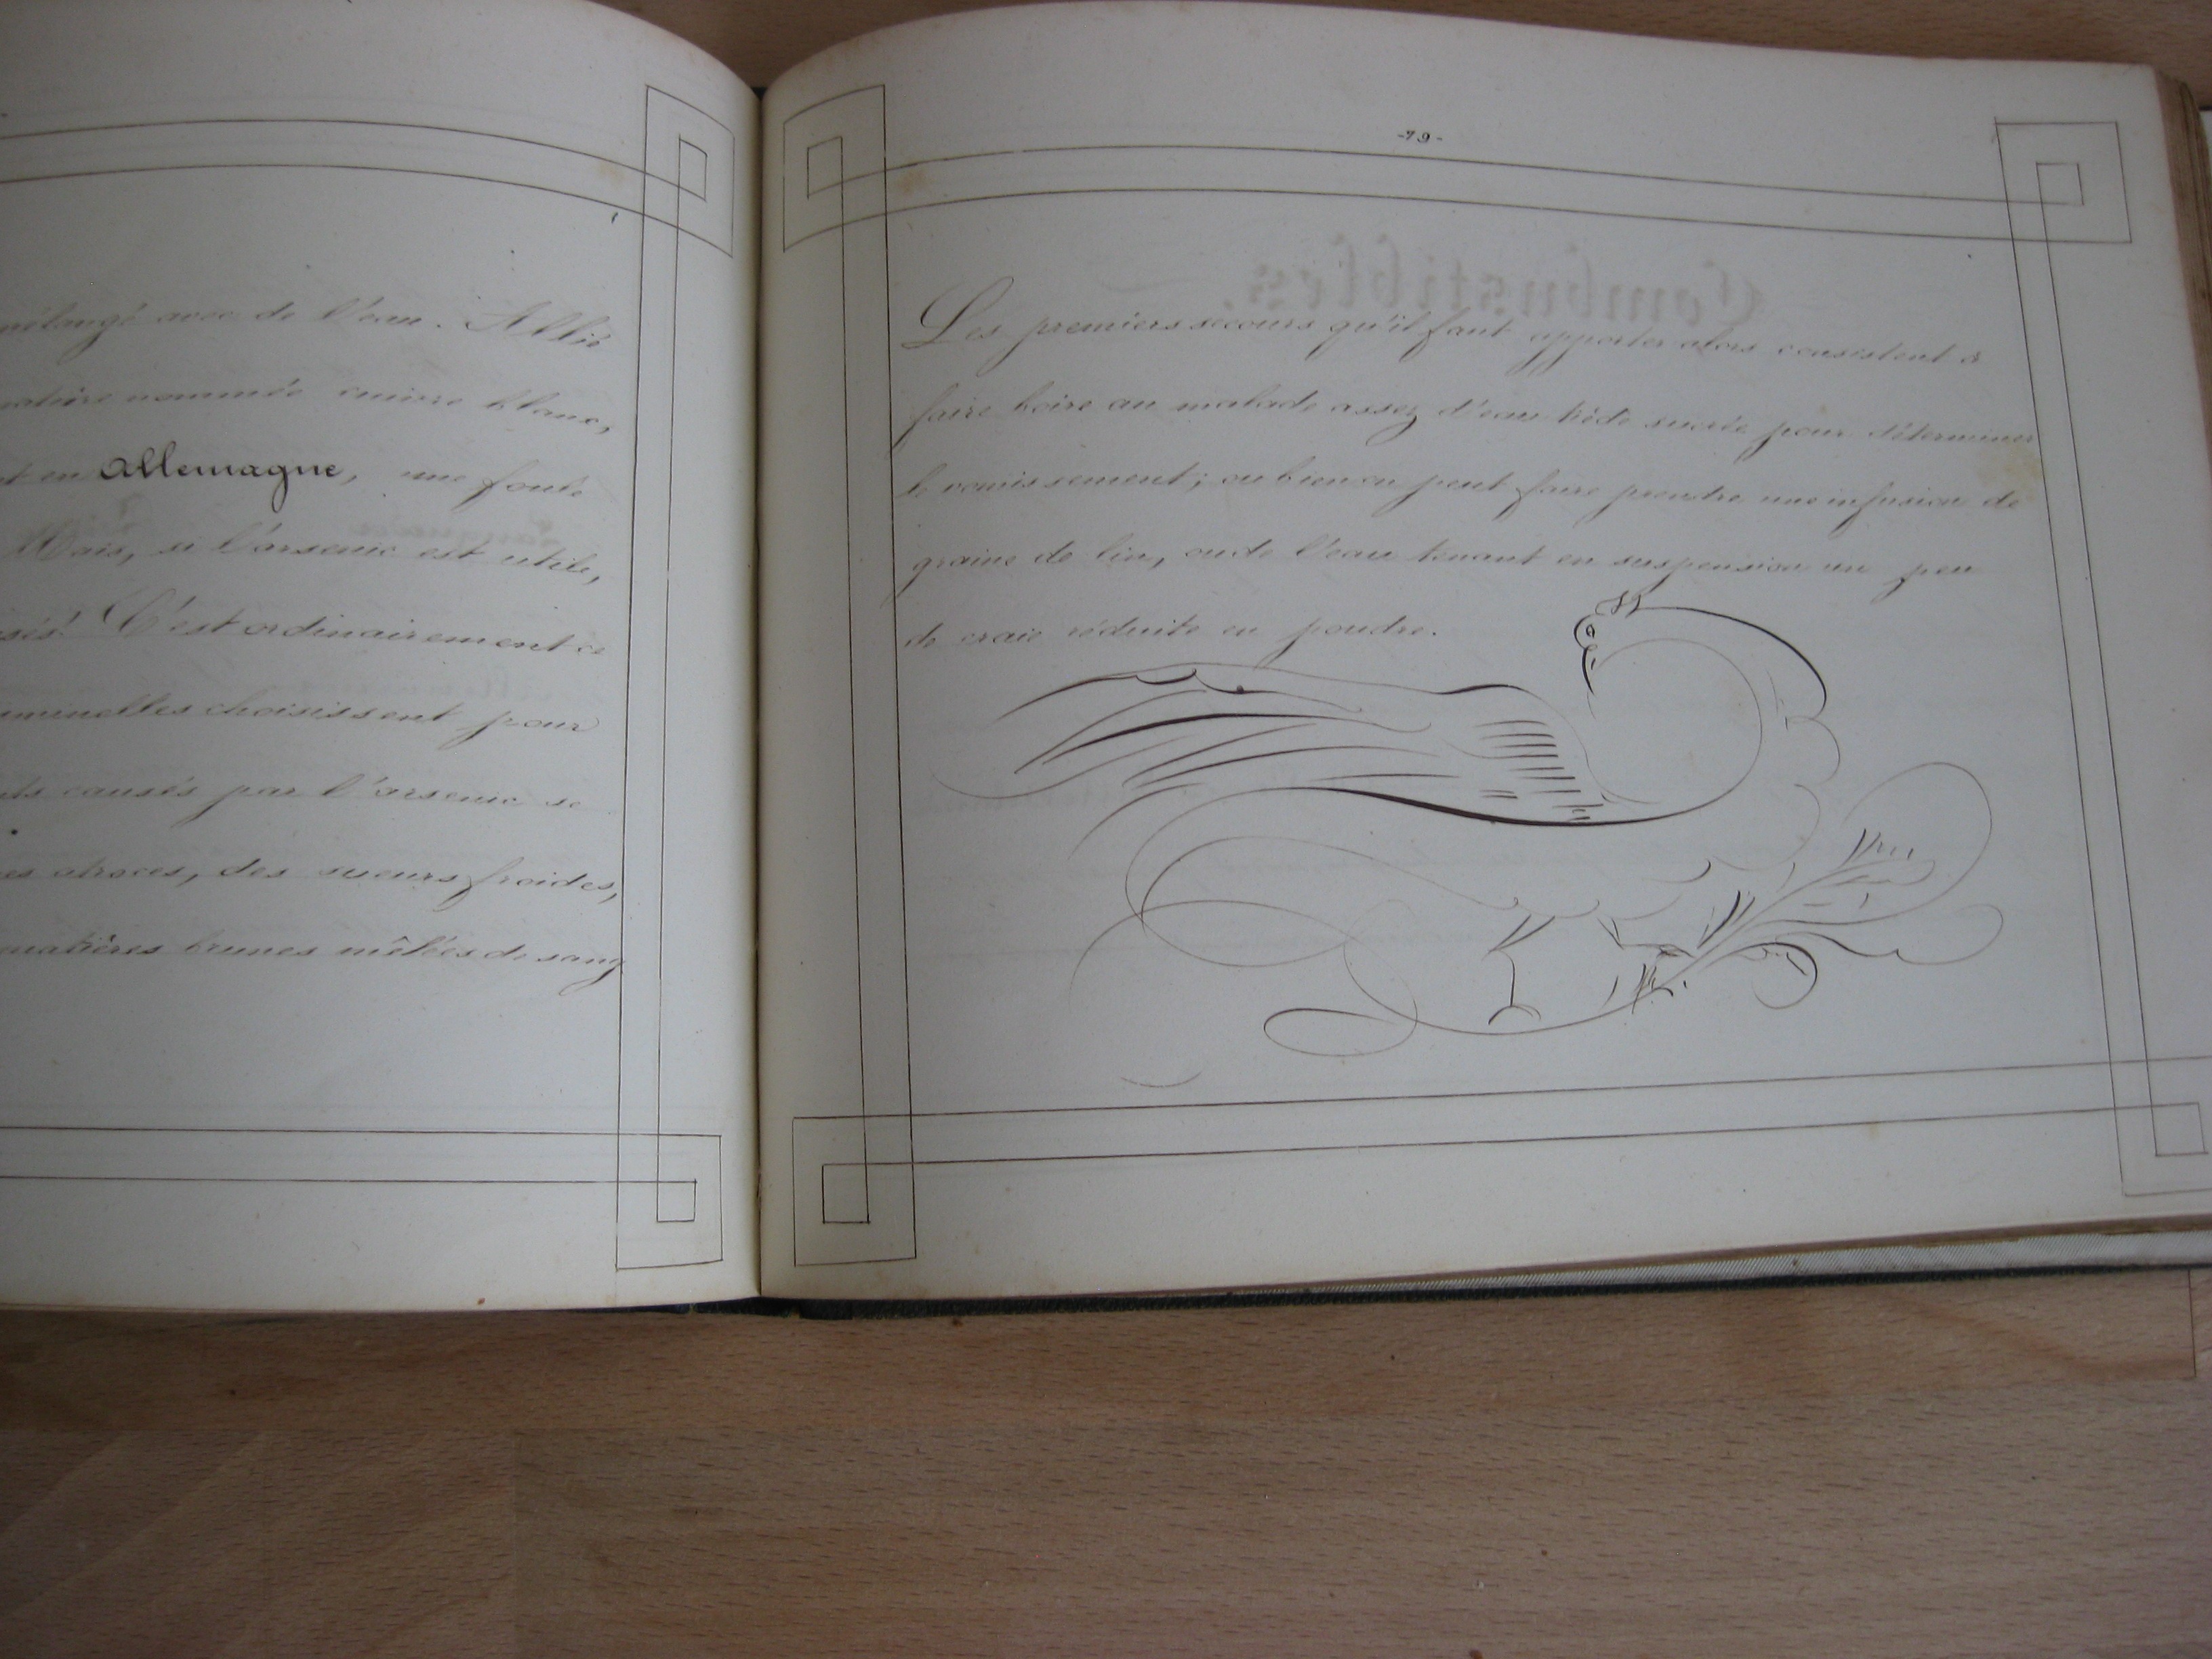 mélangé avec de l'eau. Allié
matière nommée cuivre blanc,
t en Allemagne, une foule
Mais, si l'arsenic est utile,
sés! C'est ordinairement ce
iminelles choisissent pour
ts causés par l'arsenic se
es atroces, des sueurs froides,
matières brunes mêlées de sang
-79-
Les premiers secours qu'il faut apporter alors consistent à
faire boire au malade assez d'eau tiède sucrée pour déterminer
le vomissement; ou bien on peut faire prendre une infusion de
graine de lin, ou de l'eau tenant en suspension un peu
de craie réduite en poudre.
Combustibles.